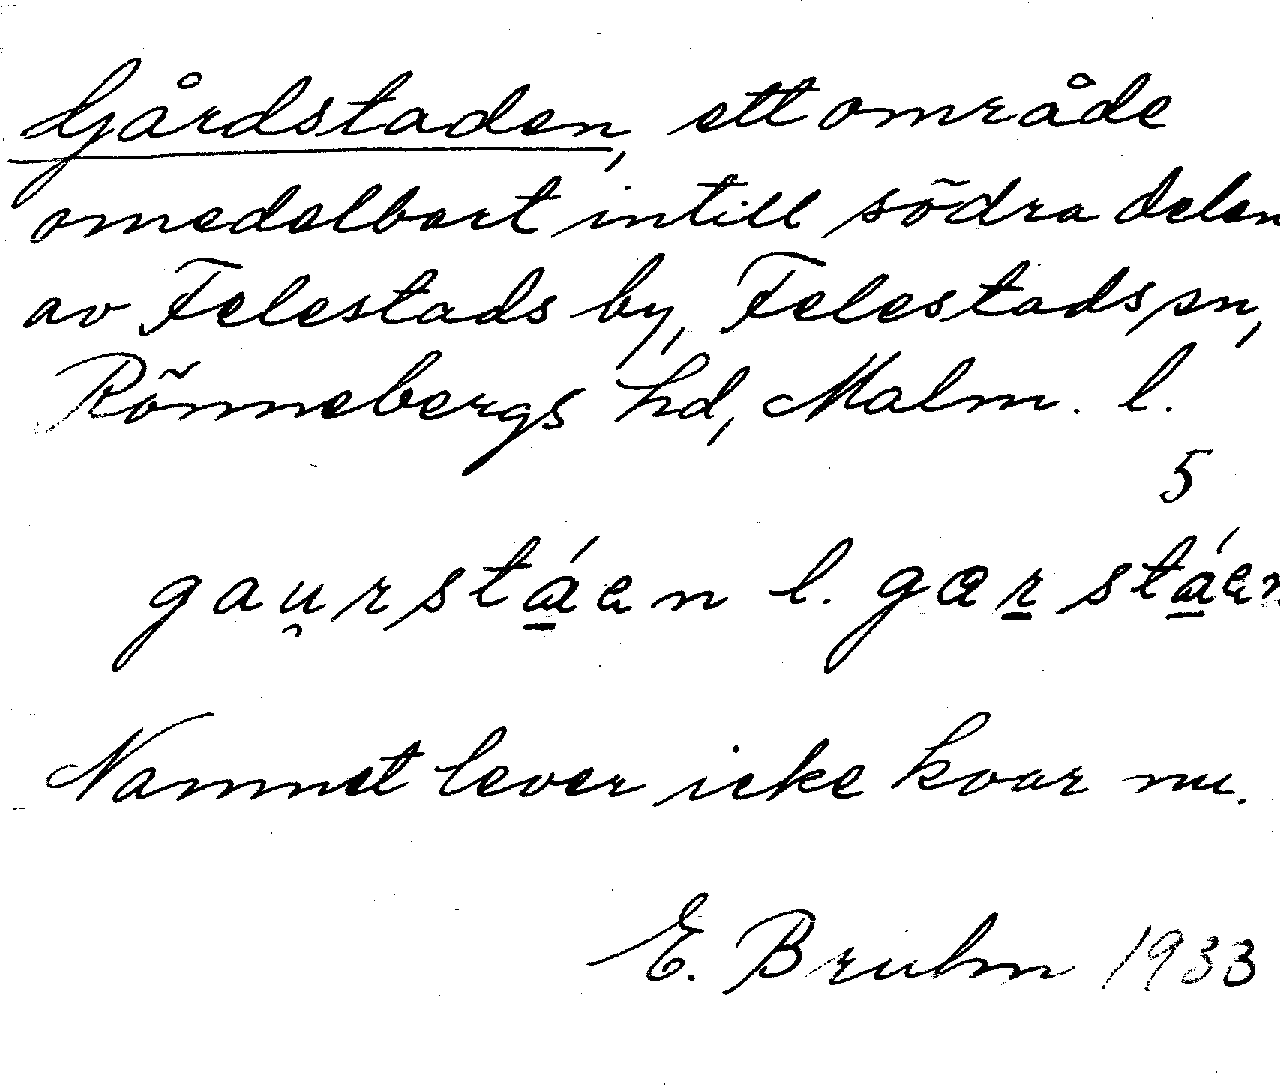 Gårdstaden, ett område
omedelbart intill södra delen
av Felestads by, Felestads sn,
Rönnebergs hd, Malm. l.
5
gau̯rstá̱en l. gæṟstá̱en
Namnet lever icke kvar nu.
E. Bruhn 1933